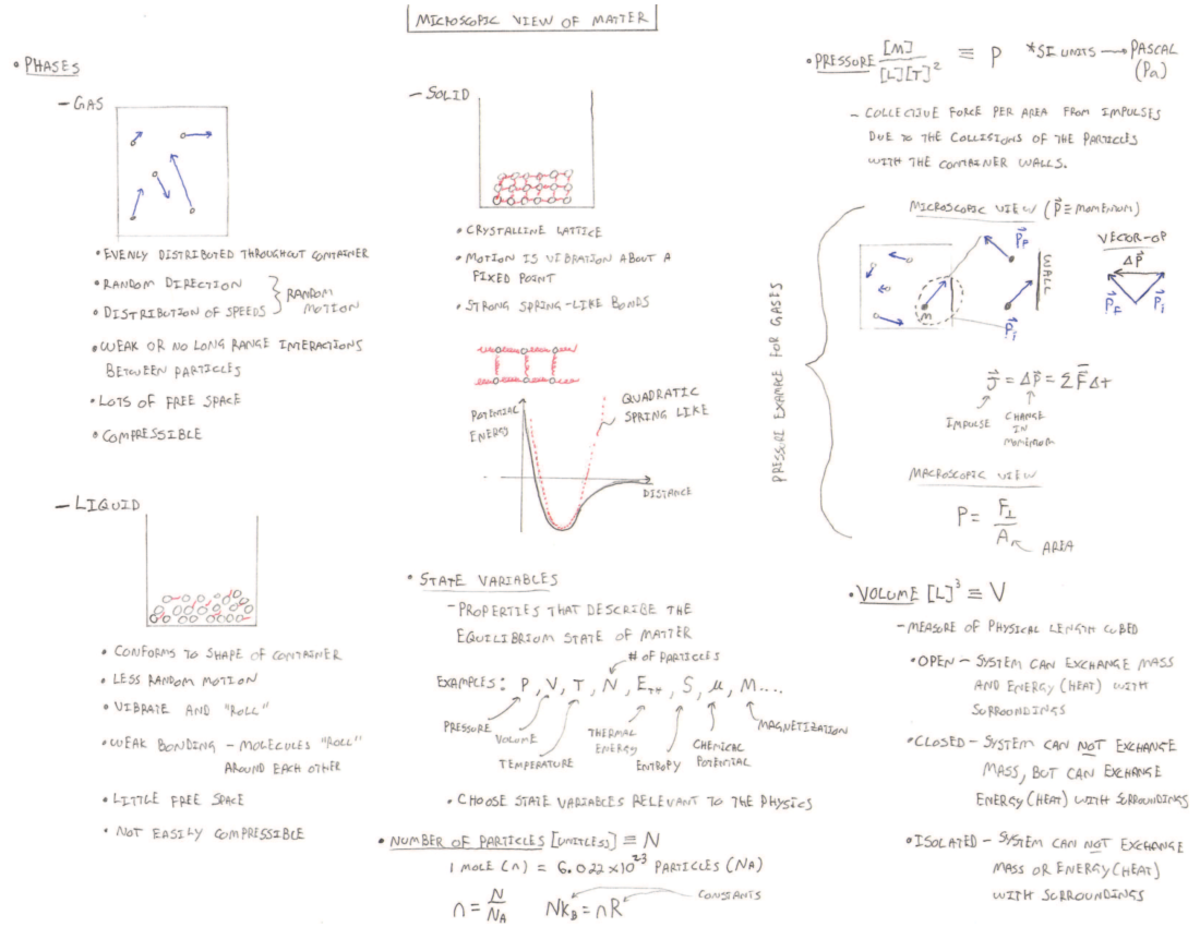 MICROSCOPIC VIEW OF MATTER
• PHASES
- GAS
• EVENLY DISTRIBUTED THROUGHOUT CONTAINER
• RANDOM DIRECTION
• DISTRIBUTION OF SPEEDS
} RANDOM
MOTION
• WEAK OR NO LONG RANGE INTERACTIONS
BETWEEN PARTICLES
• LOTS OF FREE SPACE
• COMPRESSIBLE
- LIQUID
• CONFORMS TO SHAPE OF CONTAINER
• LESS RANDOM MOTION
• VIBRATE AND "ROLL"
• WEAK BONDING - MOLECULES "ROLL"
AROUND EACH OTHER
• LITTLE FREE SPACE
• NOT EASILY COMPRESSIBLE
- SOLID
• CRYSTALLINE LATTICE
• MOTION IS VIBRATION ABOUT A
FIXED POINT
• STRONG SPRING-LIKE BONDS
POTENTIAL
ENERGY
QUADRATIC
SPRING LIKE
DISTANCE
• STATE VARIABLES
- PROPERTIES THAT DESCRIBE THE
EQUILIBRIUM STATE OF MATTER
# OF PARTICLES
EXAMPLES: P, V, T, N, E_TH, S, μ, M....
PRESSURE
VOLUME
TEMPERATURE
THERMAL
ENERGY
ENTROPY
CHEMICAL
POTENTIAL
MAGNETIZATION
• CHOOSE STATE VARIABLES RELEVANT TO THE PHYSICS
• NUMBER OF PARTICLES [UNITLESS] ≡ N
1 MOLE (n) = 6.022 ×10²³ PARTICLES (N_A)
n = N/N_A NK_B = nR CONSTANTS
• PRESSURE [M]/[L][T]² ≡ P *SI UNITS → PASCAL
(Pa)
- COLLECTIVE FORCE PER AREA FROM IMPULSES
DUE TO THE COLLISIONS OF THE PARTICLES
WITH THE CONTAINER WALLS.
PRESSURE EXAMPLE FOR GASES
MICROSCOPIC VIEW (p⃗ ≡ MOMENTUM)
m
p⃗_F
p⃗_i
WALL
VECOR-OP
Δp⃗
p⃗_F p⃗_i
J⃗ = Δp⃗ = ΣF⃗Δt
IMPULSE
CHANGE
IN
MOMENTUM
MACROSCOPIC VIEW
P = F⊥/A
AREA
• VOLUME [L]³ ≡ V
- MEASURE OF PHYSICAL LENGTH CUBED
• OPEN - SYSTEM CAN EXCHANGE MASS
AND ENERGY (HEAT) WITH
SURROUNDINGS
• CLOSED - SYSTEM CAN NOT EXCHANGE
MASS, BUT CAN EXCHANGE
ENERGY (HEAT) WITH SURROUNDINGS
• ISOLATED - SYSTEM CAN NOT EXCHANGE
MASS OR ENERGY (HEAT)
WITH SURROUNDINGS